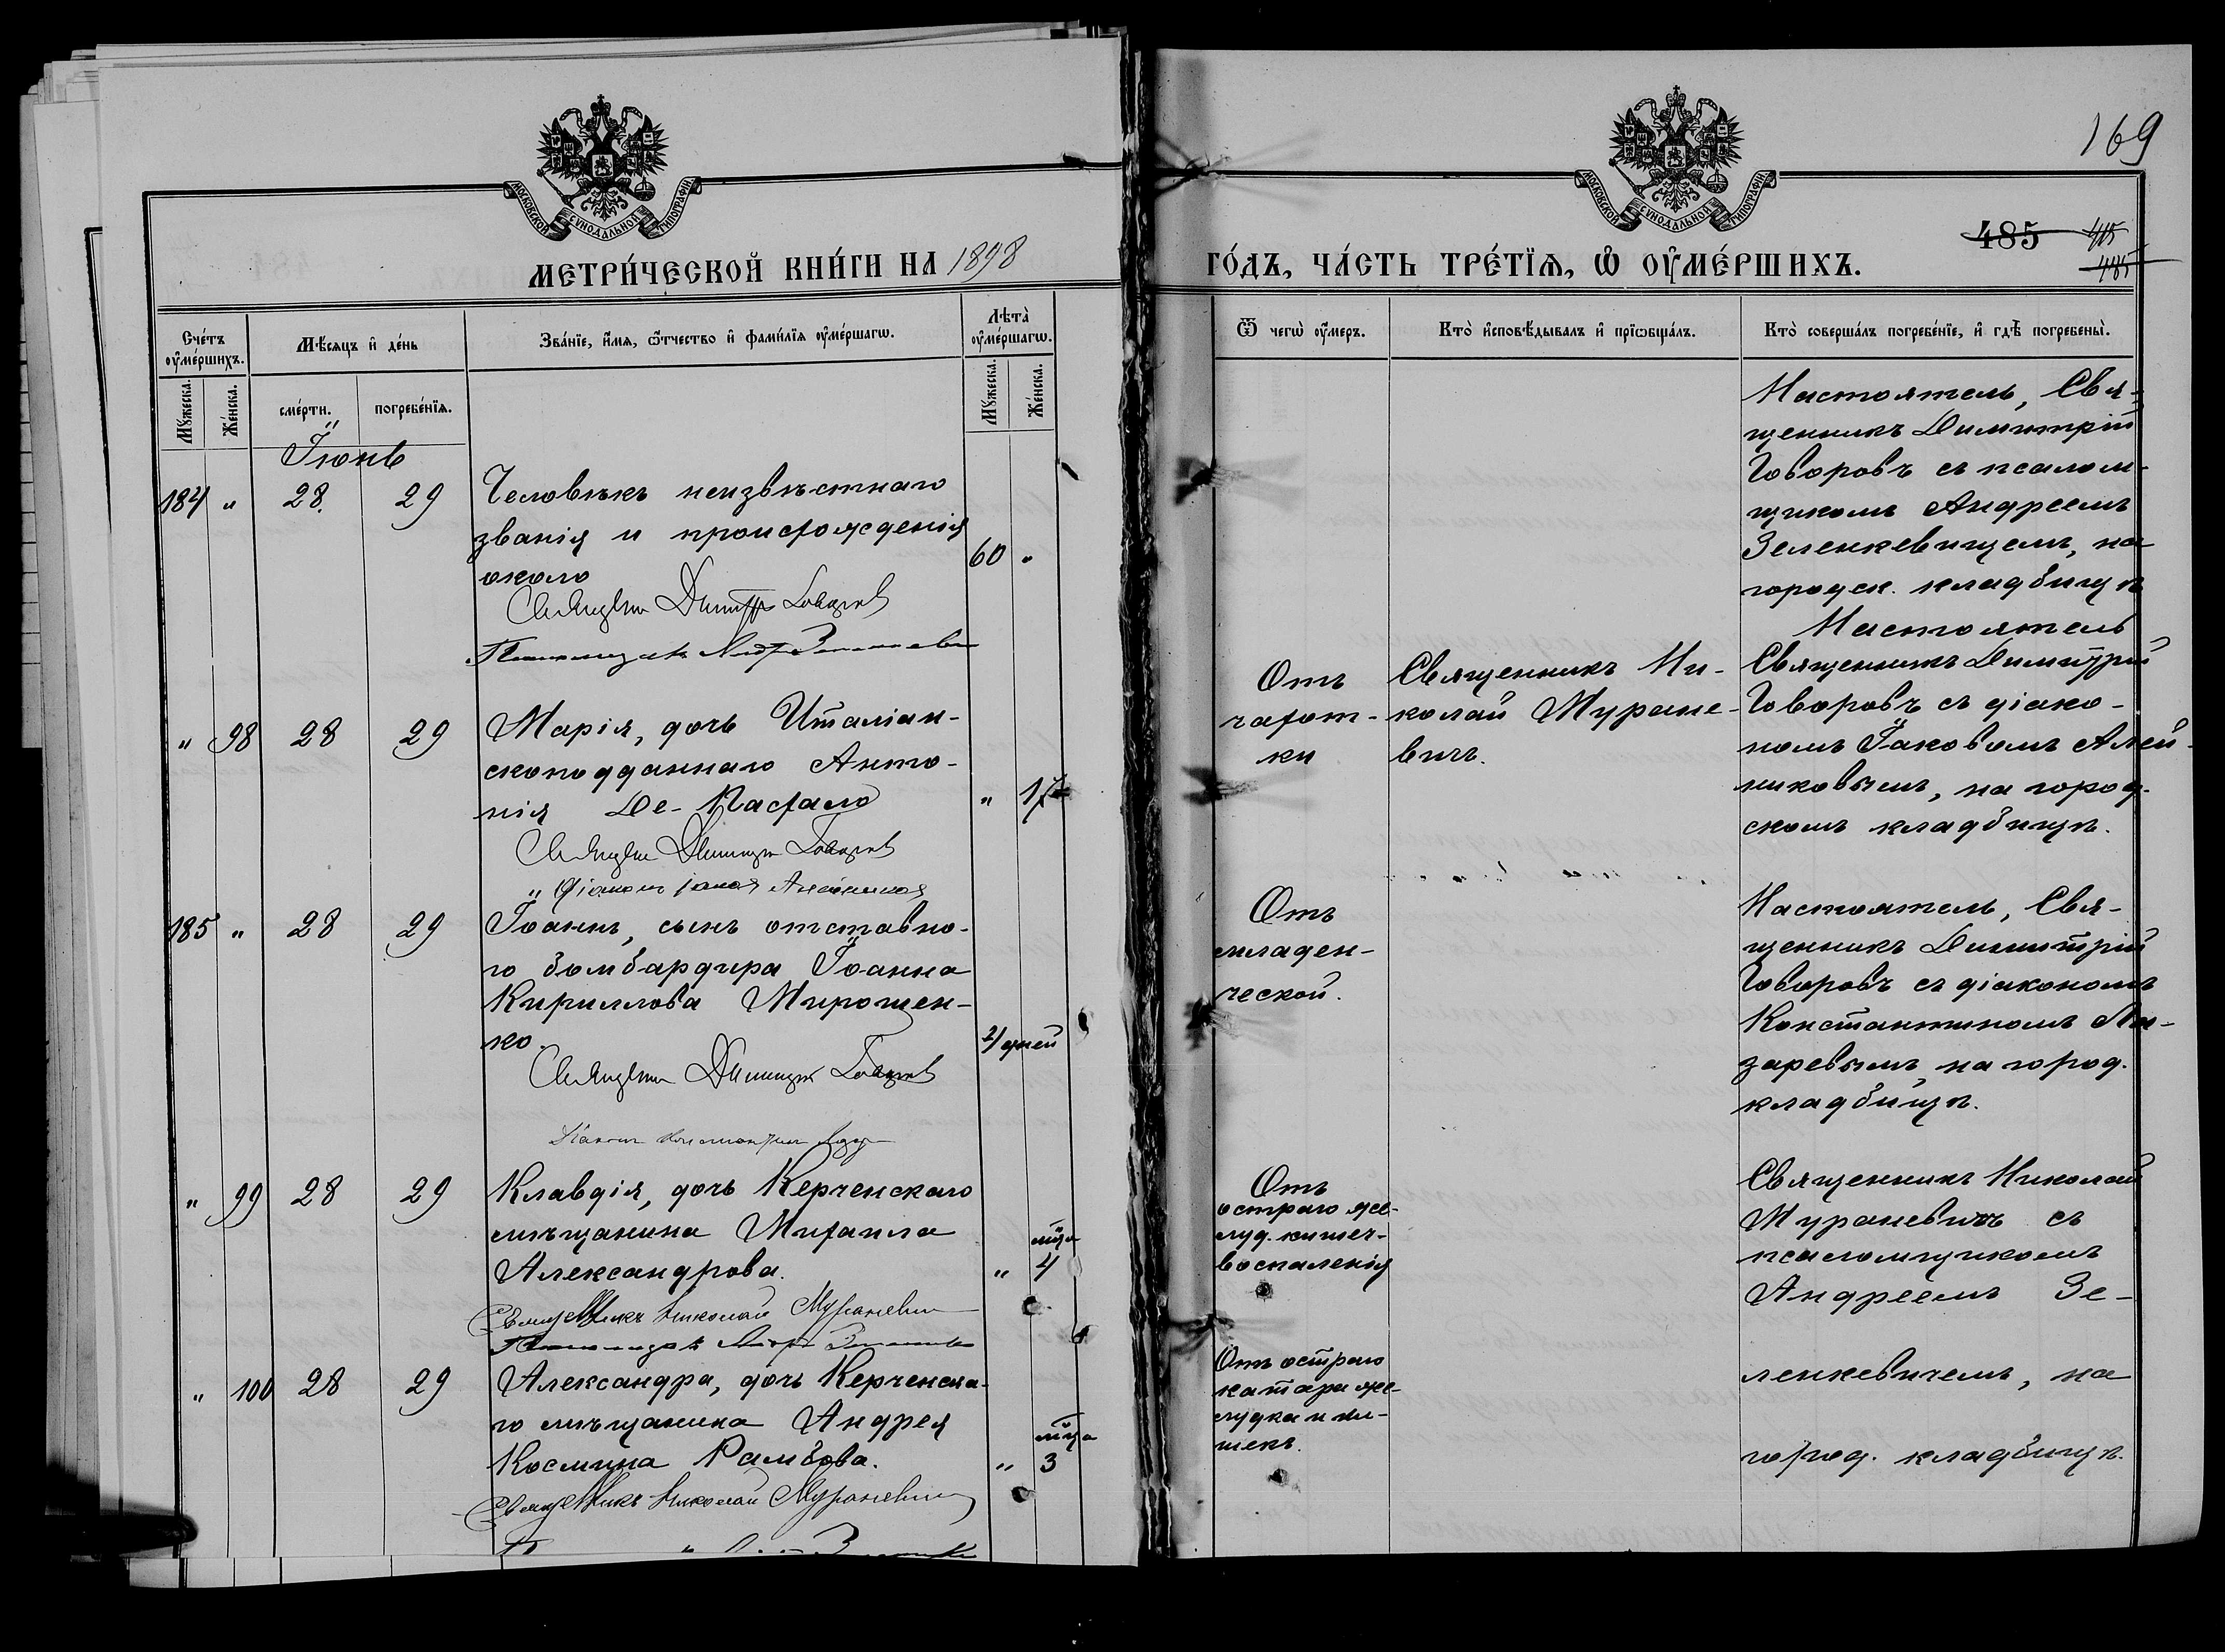 169
МОСКОВСКОЙ СѴНОДАЛЬНОЙ ТИПОГРАФІИ
МОСКОВСКОЙ СѴНОДАЛЬНОЙ ТИПОГРАФІИ
485 415
485
МЕТРИ́ЧЕСКОЙ КНИ́ГИ НА 1898
ГО́ДЪ, ЧА́СТЬ ТРЕ́ТЇѦ, Ѡ҆ ОУ҆МЕ́РШИХЪ.
Сче́тъ оу҆ме́ршихъ.
Мѣ́сѧцъ и҆ де́нь
Зва́нїе, и҆́мѧ, ѻ҆́тчество и҆ фами́лїѧ оу҆ме́ршагѡ.
Лѣта̀ оу҆ме́ршагѡ.
Ѿ чегѡ̀ оу҆́меръ.
Кто̀ и҆сповѣ́дывалъ и҆ прїѡбща́лъ.
Кто̀ соверша́лъ погребе́нїе, и҆ гдѣ̀ погребены̀.
Мꙋ́жеска.
Же́нска.
сме́рти.
погребе́нїѧ.
Мꙋ́жеска.
Же́нска.
Іюнь
184 " 28. 29
Человѣкъ неизвѣстнаго
званія и происхожденія
около
60 "
Священникъ Димитрій Говоровъ
Псаломщикъ Андрей Зеленкевичъ
Настоятель, Свя-
щенникъ Димитрій
Говоровъ съ псалом-
щикомъ Андреемъ
Зеленкевичемъ, на
городск. кладбищѣ
" 98 28 29
Марія, дочь Италіан-
скоподданнаго Анто-
нія Де-Пасхало
" 17
Священникъ Димитрій Говоровъ
" Діаконъ Іаковъ
Отъ
чахот-
ки
Священникъ Ни-
колай Мурane-
вичъ.
Настоятель
Священникъ Димитрій
Говоровъ съ діако-
номъ Іаковомъ Алей-
никовымъ, на город-
скомъ кладбищѣ.
185 " 28 29
Іоаннъ, сынъ отставно-
го бомбардира Іоанна
Кириллова Мирошен-
ко.
4 дней
Священникъ Димитрій Говоровъ
Діаконъ Константинъ
Отъ
младен-
ческой.
Настоятель, Свя-
щенникъ Димитрій
Говоровъ съ діакономъ
Константиномъ Ла-
заревымъ, на город.
кладбищѣ.
" 99 28 29
Клавдія, дочь Керченскаго
мѣщанина Михаила
Александрова.
мца
" 4
Священникъ Николай Мураневичъ
Псаломщикъ Андрей Зеленкевичъ
Отъ
остраго же-
луд. кишеч-
воспаленія
Священникъ Николай
Мураневичъ съ
псаломщикомъ
Андреемъ Зе-
ленкевичемъ, на
город. кладбищѣ.
" 100 28 29
Александра, дочь Керченска-
го мѣщанина Андрея
Космина Рамбова.
мца
" 3
Священникъ Николай Мураневичъ
Отъ остраго
катара же-
лудка и ки-
шекъ.